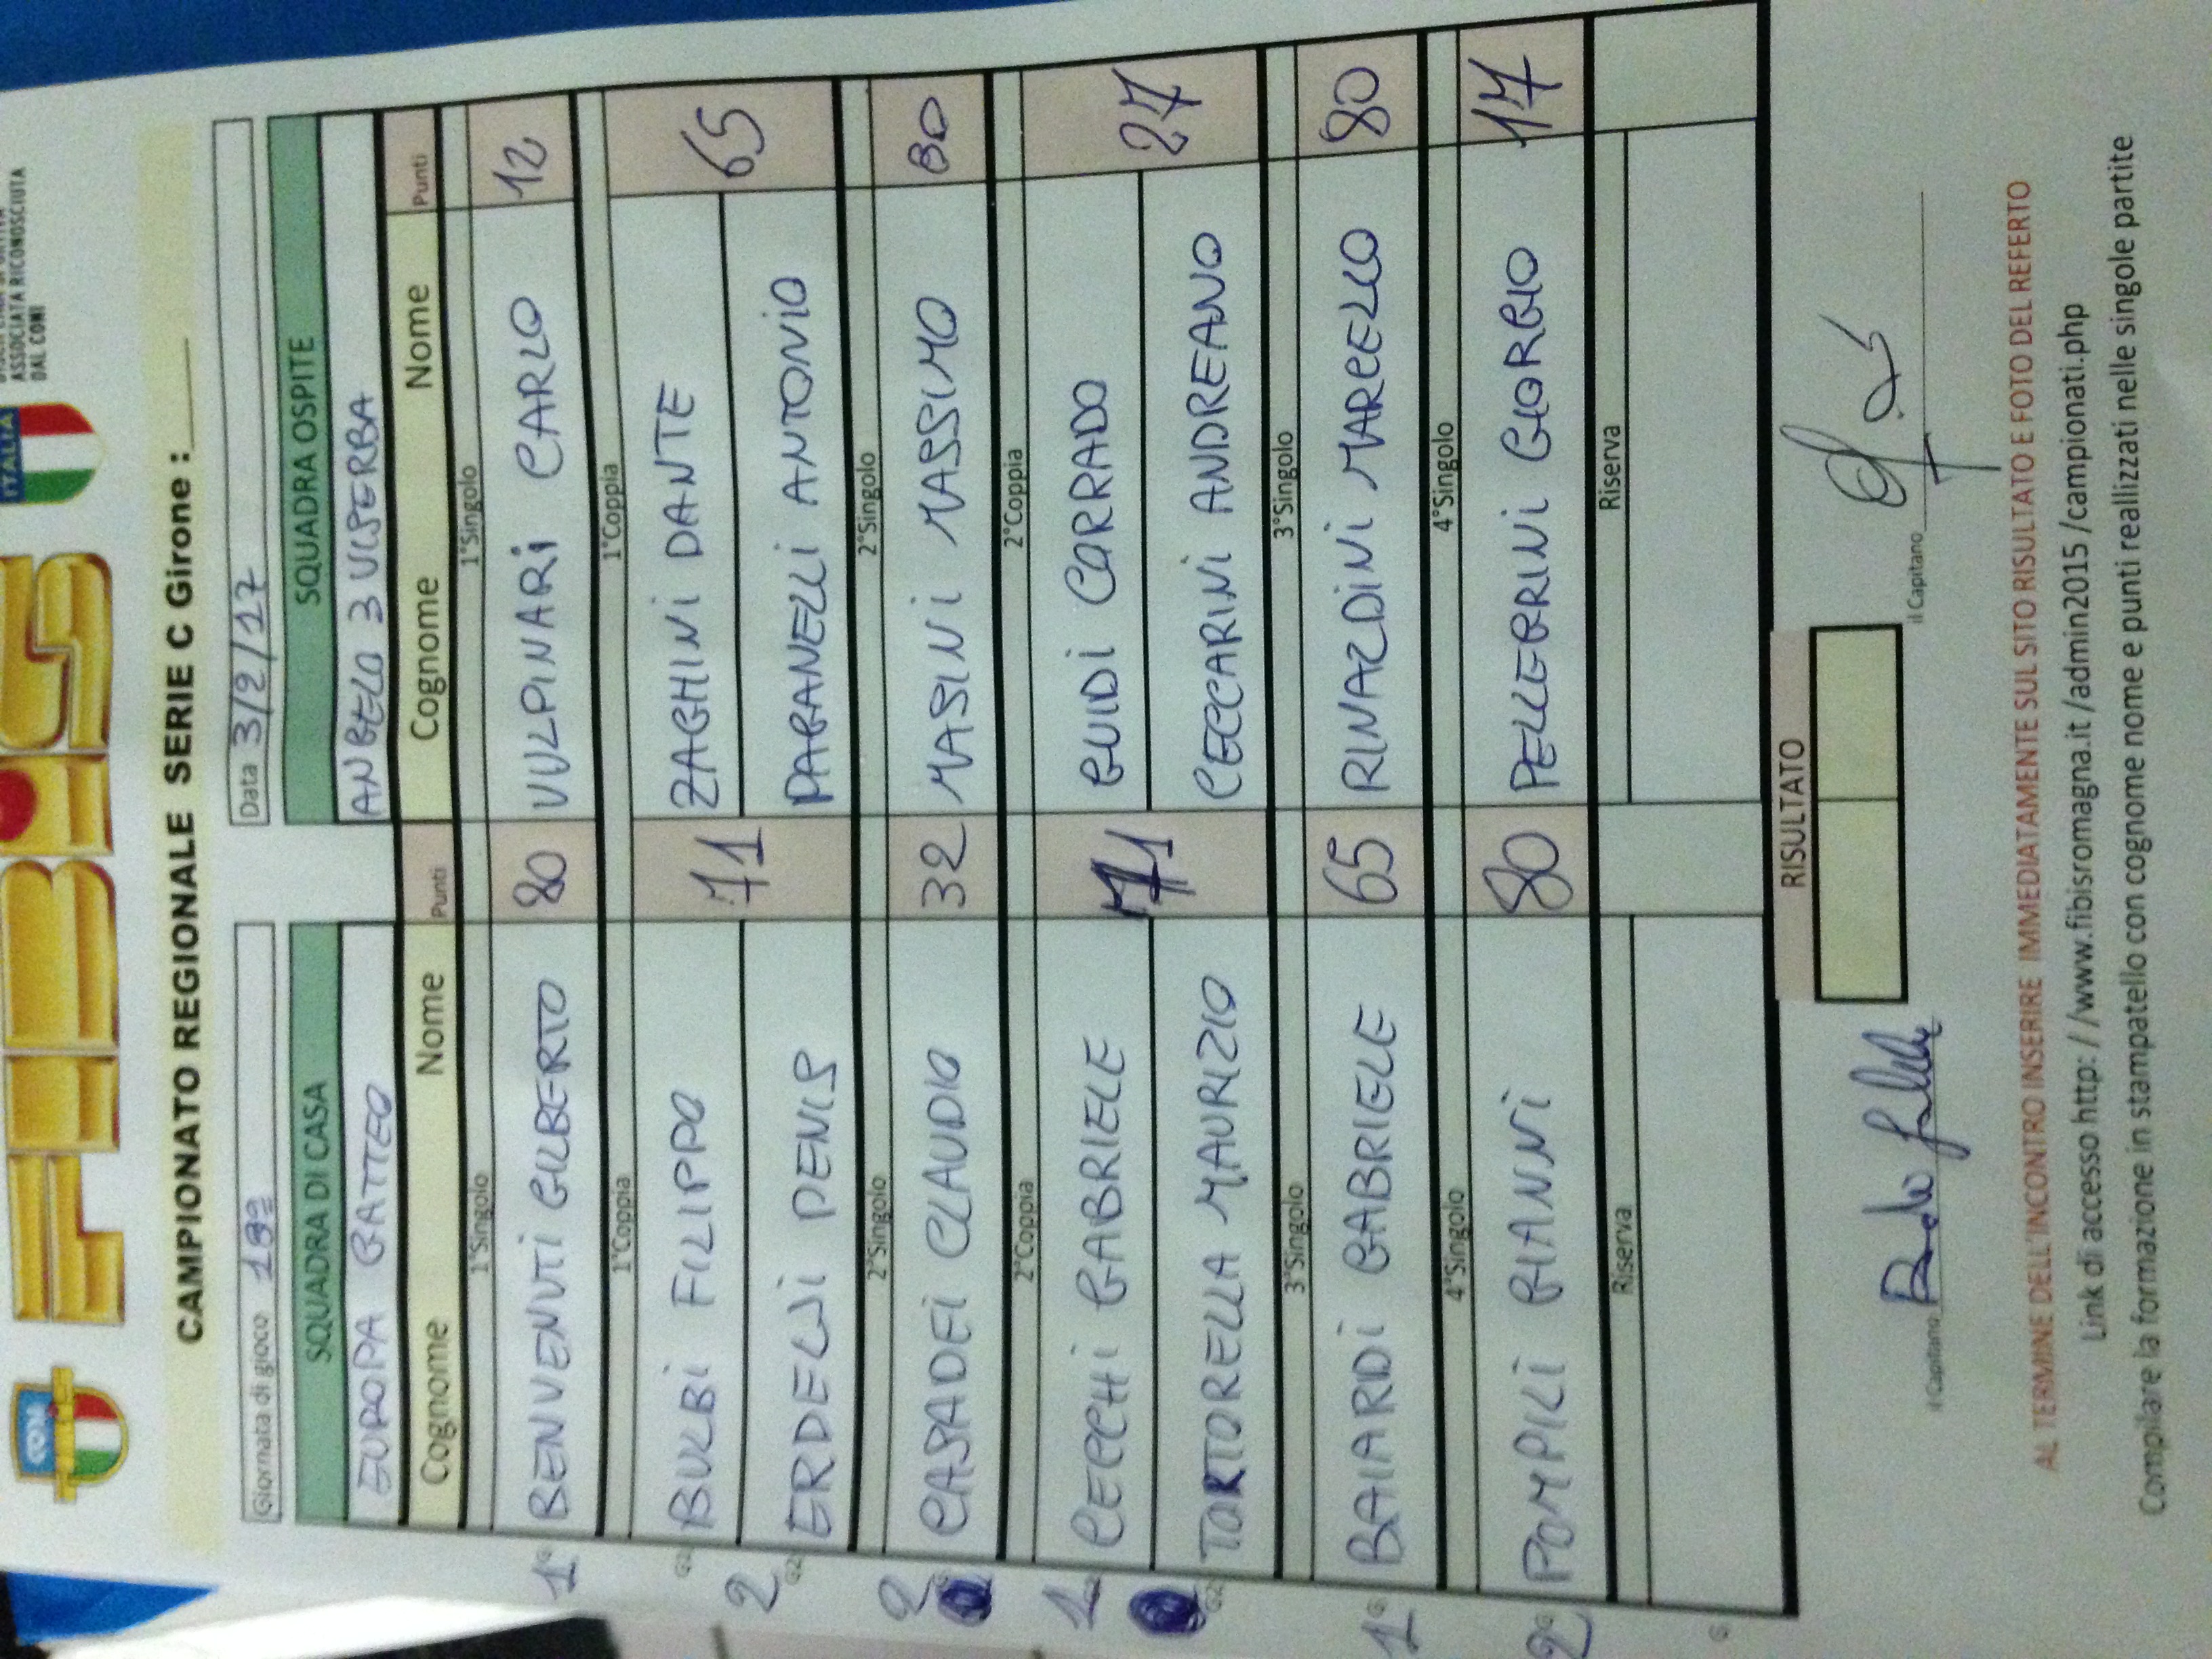 FIBiS
CONI
ITALIA
ASSOCIATA RICONOSCIUTA
DAL CONI
CAMPIONATO REGIONALE SERIE C Girone :____
Giornata di gioco Data 3/2/17
SQUADRA DI CASA SQUADRA OSPITE
EUROPA GATTEO ANGELO 3 VISERBA
Cognome Nome Punti Cognome Nome Punti
1°Singolo 1°Singolo
BENVENUTI GILBERTO 80 VULPINARI CARLO 12
1°Coppia 1°Coppia
BULBI FILIPPO 71 ZAGHINI DANTE 65
ERDELJI DENIS PAGANELLI ANTONIO
2°Singolo 2°Singolo
CASADEI CLAUDIO 32 MASINI MASSIMO 80
2°Coppia 2°Coppia
CECCHI GABRIELE 71 GUIDI CORRADO 27
TORTORELLA MAURIZIO CECCARINI ANDREANO
3°Singolo 3°Singolo
BAIARDI GABRIELE 65 RINALDINI MARCELLO 80
4°Singolo 4°Singolo
POMPILI GIANNI 80 PELLEGRINI GIORGIO 17
Riserva Riserva
RISULTATO
il Capitano il Capitano
AL TERMINE DELL'INCONTRO INSERIRE IMMEDIATAMENTE SUL SITO RISULTATO E FOTO DEL REFERTO
Link di accesso http: / /www.fibisromagna.it /admin2015 /campionati.php
Compilare la formazione in stampatello con cognome nome e punti reallizzati nelle singole partite